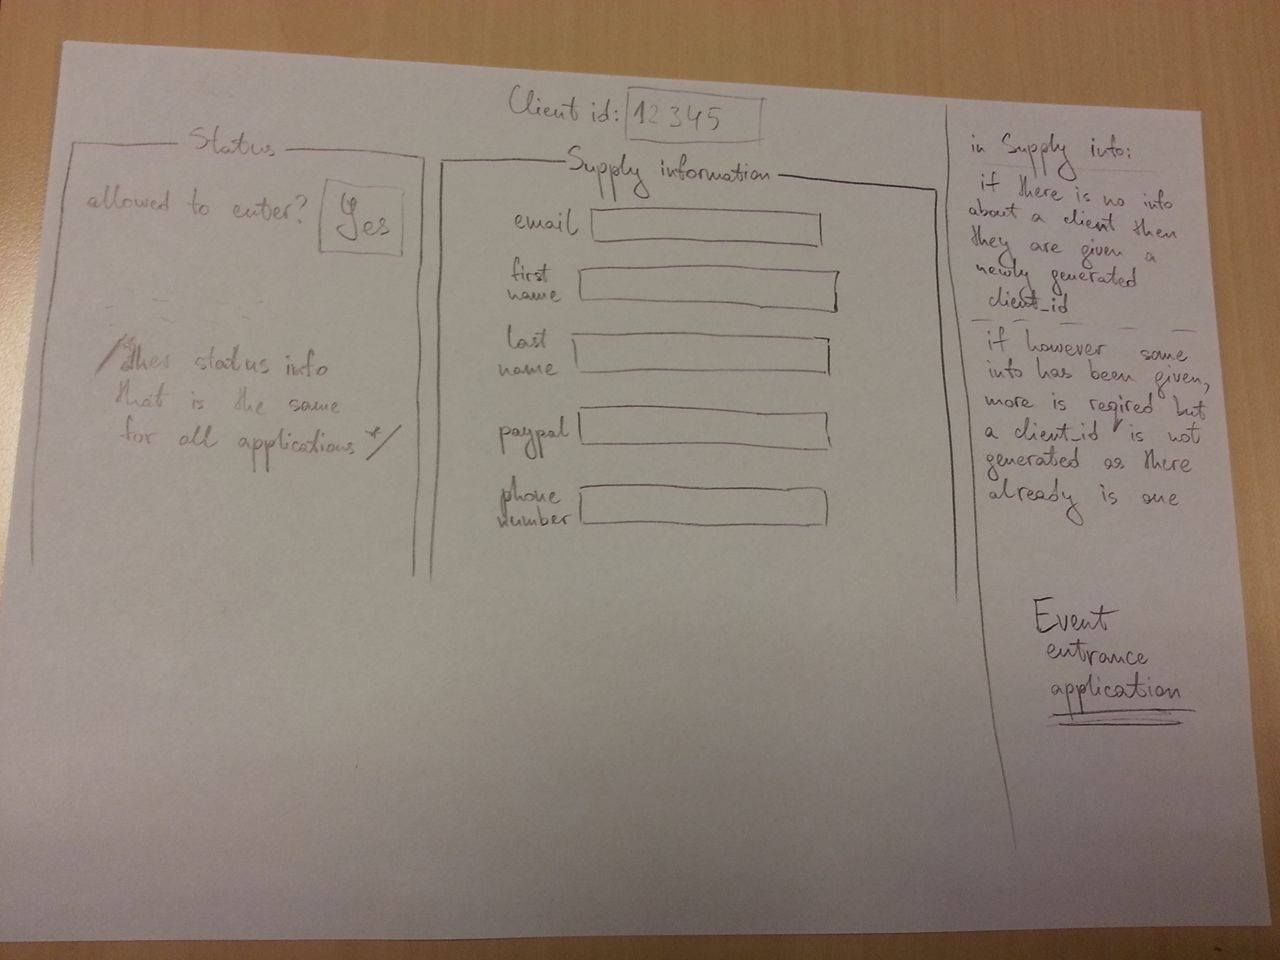 Client id: 12345
Status
allowed to enter? Yes
status info
that is the same
for all applications */
Supply information
email
first
name
last
name
paypal
phone
number
in Supply info:
if there is no info
about a client then
they are given a
newly generated
client_id
if however some
info has been given,
more is reqired but
a client_id is not
generated as there
already is one
Event
entrance
application